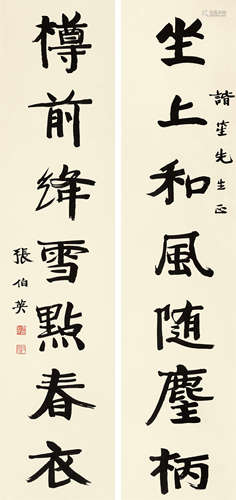 坐上和風随麈柄
諧笙先生正
樽前绛雪點春衣
張伯英